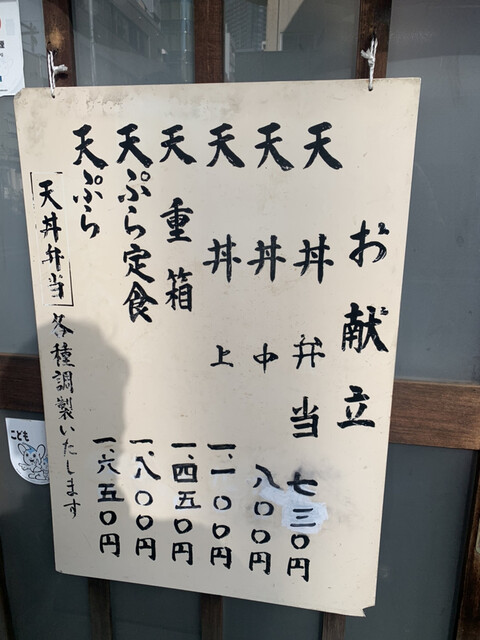 お献立
天丼弁当 七三〇円
天丼 中 八〇〇円
天丼 上 一、一〇〇円
天重箱 一、四五〇円
天ぷら定食 一、八〇〇円
天ぷら 一、六五〇円
天丼弁当 各種調製いたします
こども